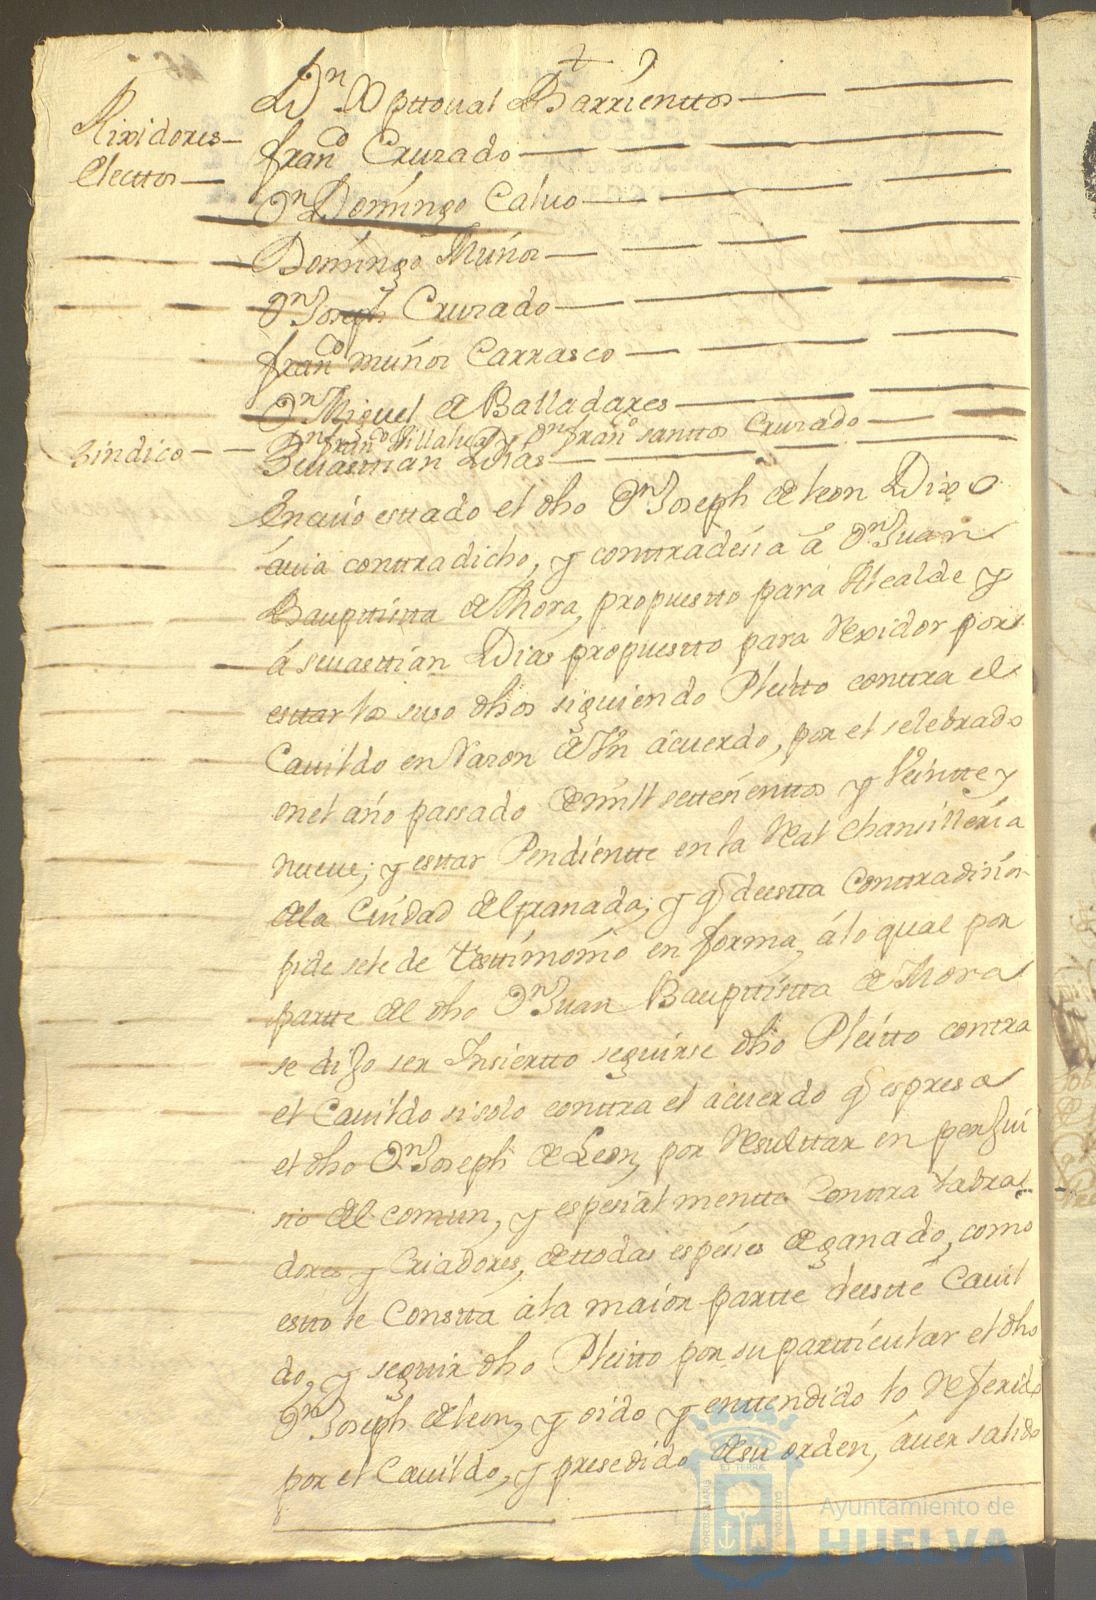 Dn Xpttoual Barrienttos
Rixidores
Electtos
Franco Cruzado
Dn Domingo Caluo
Domingo Muños
Dn Joseph Cruzado
Franco muños Carrasco
Dn Miguel de Balladares
Dn Franco Villalua y Dn Franco santtos Cruzado
Sindico
Seuasttian Dias
En cuio esttado el dho Dn Joseph de leon Dixo
áuia conttradicho, y conttradesia á Dn Juan
Baupttistta de Mora, propuestto para Alcalde y
á seuasttian Dias propuestto para Rexidor por
esttar los suso dhos siguiendo Pleitto conttra el
Cauildo en Razon de Un ácuerdo, por el selebrado
en el año passado de mill settesienttos y Veintte y
nueue; y esttar Pendientte en la Real Chansilleria
de la Ciudad de Granada; y q deestta Conttradision
pide se le de testtimonio en forma, á lo qual por
partte del dho Dn Juan Baupttistta de Mora
se dijo ser Insiertto seguirse dho Pleitto conttra
el Cauildo si solo conttra el ácuerdo q espresa
el dho Dn Joseph de Leon, por Resulttar en perjui
sio del comun, y espesialmentte Conttra labra
dores y Criadores, de ttodas espesies de ganado, como
estto le Constta á la maior partte deestte Cauil
do, y seguir dho Pleitto por su partticular el dho
Dn Joseph de leon, y oido y enttendido lo Referido
por el Cauildo, y presedido de su orden, áuer salido
Ayuntamiento de
HUELVA